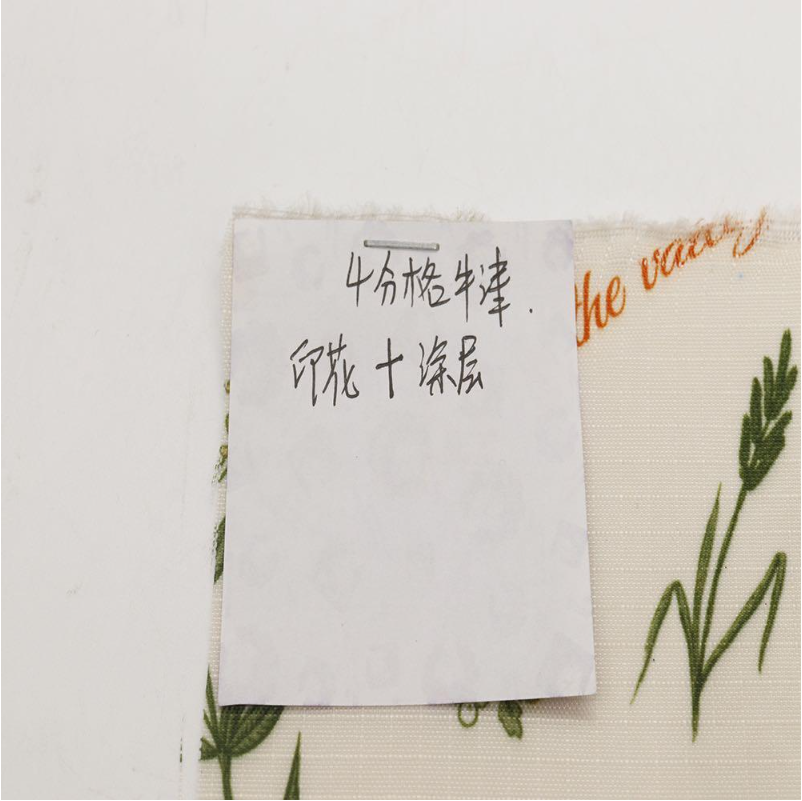 4分格牛津.
印花+涂层
the valley